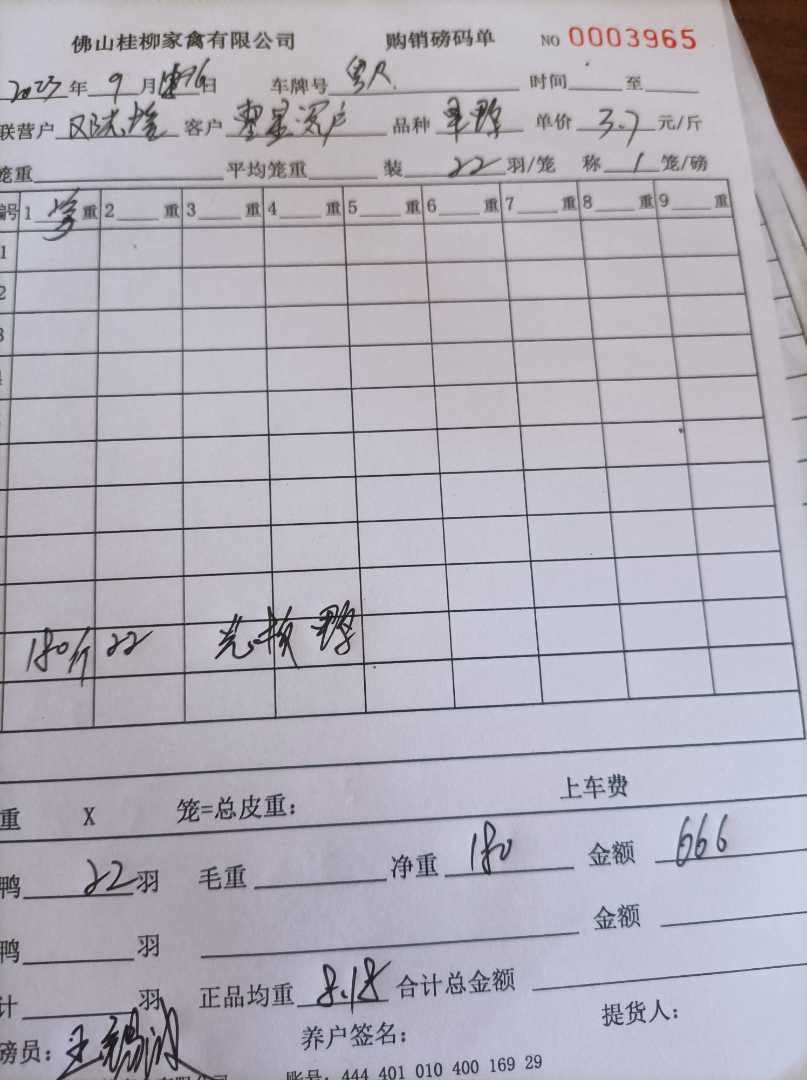 佛山桂柳家禽有限公司 购销磅码单 NO 0003965
2023年 9月 26日 车牌号 时间 至
联营户 客户 品种 单价 3.7 元/斤
笼重 平均笼重 装 22 羽/笼 称 1 笼/磅
编号 1 重 2 重 3 重 4 重 5 重 6 重 7 重 8 重 9 重
1
2
3
180斤 22 光 鸭
重 X 笼=总皮重: 上车费
鸭 22 羽 毛重 净重 180 金额 666
鸭 羽 金额
计 羽 正品均重 8.18 合计总金额
磅员: 养户签名: 提货人:
账号: 444 401 010 400 169 29